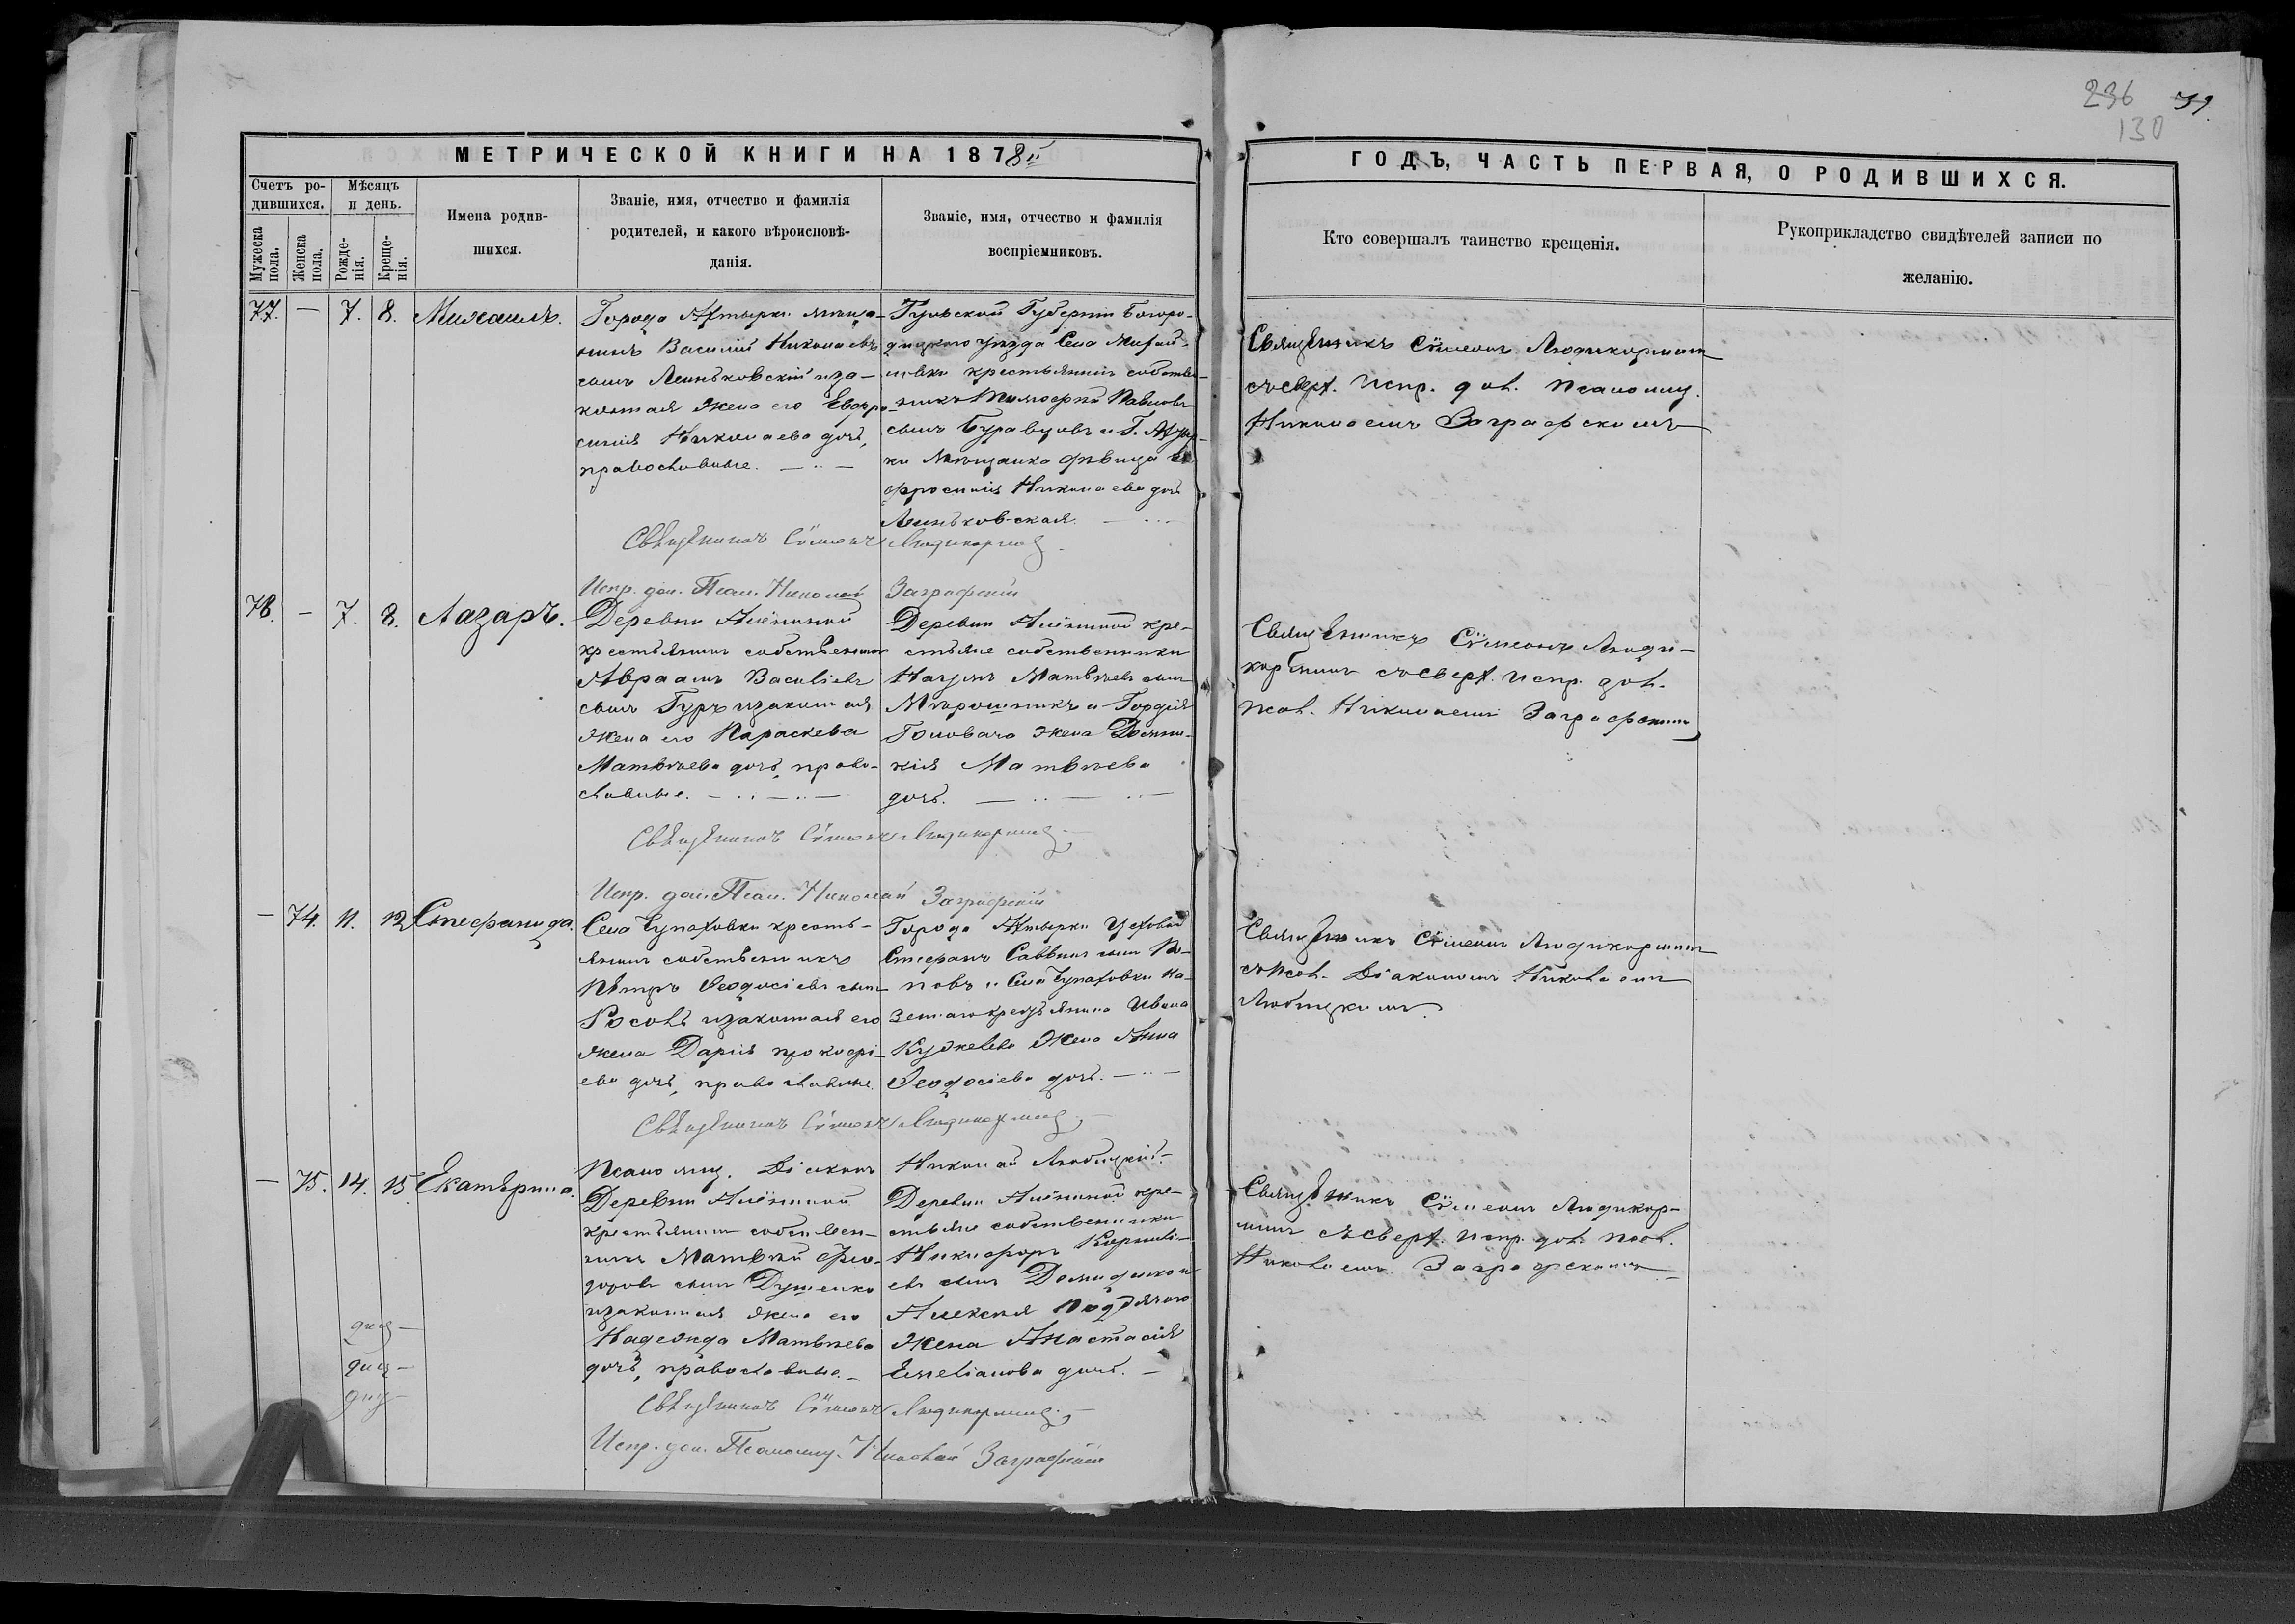 236 39.
130
МЕТРИЧЕСКОЙ КНИГИ НА 1878й
ГОДЪ, ЧАСТЬ ПЕРВАЯ, О РОДИВШИХСЯ.
Счетъ ро-
дившихся.
Мужеска
пола.
Женска
пола.
Мѣсяцъ
и день.
Рожде-
нія.
Креще-
нія.
Имена родив-
шихся.
Званіе, имя, отчество и фамилія
родителей, и какого вѣроисповѣ-
данія.
Званіе, имя, отчество и фамилія
воспріемниковъ.
Кто совершалъ таинство крещенія.
Рукоприкладство свидѣтелей записи по
желанію.
77. — 7. 8. Михаилъ.
Города Ахтырки мѣща-
нинъ Василій Николаевъ
сынъ Линьковскій и за-
конная жена его Евфро-
синія Николаева дочь,
православные.
Тульской Губерніи Богоро-
дицкаго уѣзда Села
крестьянинъ собствен-
никъ Тимофей Павловъ
сынъ Буравцовъ и Г. Ахтыр-
ки Мѣщанка дѣвица Ев-
фросинія Николаева дочь
Линьковская.
Священникъ Сѵмеонъ Людикорминъ
съ сверх. Испр. дол. Псаломщ.
Николаемъ Заграфскимъ
Священникъ Сѵмеонъ Людикорминъ
Испр. дол. Псал. Николай Заграфскій
78. — 7. 8. Лазаръ.
Деревни Алёшиной
крестьянинъ собственникъ
Авраамъ Василіевъ
сынъ Гуръ и законная
жена его Параскева
Матвѣева дочь, право-
славные.
Деревни Алёшиной кре-
стьяне собственники
Наумъ Матвѣевъ сынъ
Мирошникъ и Гордія
Головача жена Домни-
кія Матвѣева
дочь.
Священникъ Сѵмеонъ Люди-
корминъ съ сверх. Испр. дол.
псал. Николаемъ Заграфскимъ
Священникъ Сѵмеонъ Людикорминъ
Испр. дол. Псал. Николай Заграфскій
— 74. 11. 12. Стефанида.
Села Чупаховки кресть-
янинъ собственникъ
Петръ Ѳеодосіевъ сынъ
Росолъ и законная его
жена Дарія Прокофі-
ева дочь, православные
Города Ахтырки Цеховой
Стефанъ Саввинъ сынъ По-
повъ и Села Чупаховки Ка-
зеннаго крестьянина Ивана
жена Анна
Ѳеодосіева дочь.
Священникъ Сѵмеонъ Людикорминъ
съ псал. Діакономъ Николаемъ
Любицкимъ.
Священникъ Сѵмеонъ Людикорминъ
Псаломщ. Діаконъ Николай Любицкій.
— 75. 14. 15. Екатерина.
Деревни Алёшиной
крестьянинъ собствен-
никъ Матвѣй Фео-
доровъ сынъ Душенко
и законная жена его
Надежда Матвѣева
дочь, православные.
Деревни Алёшиной кре-
стьяне собственники
Никифоръ Корнилі-
евъ сынъ и
Алексѣя Поддячаго
жена Анастасія
Емеліанова дочь.
Священникъ Сѵмеонъ Людикор-
минъ съ сверх. Испр. дол. псал.
Николаемъ Заграфскимъ
Священникъ Сѵмеонъ Людикорминъ
Испр. дол. Псаломщ. Николай Заграфскій